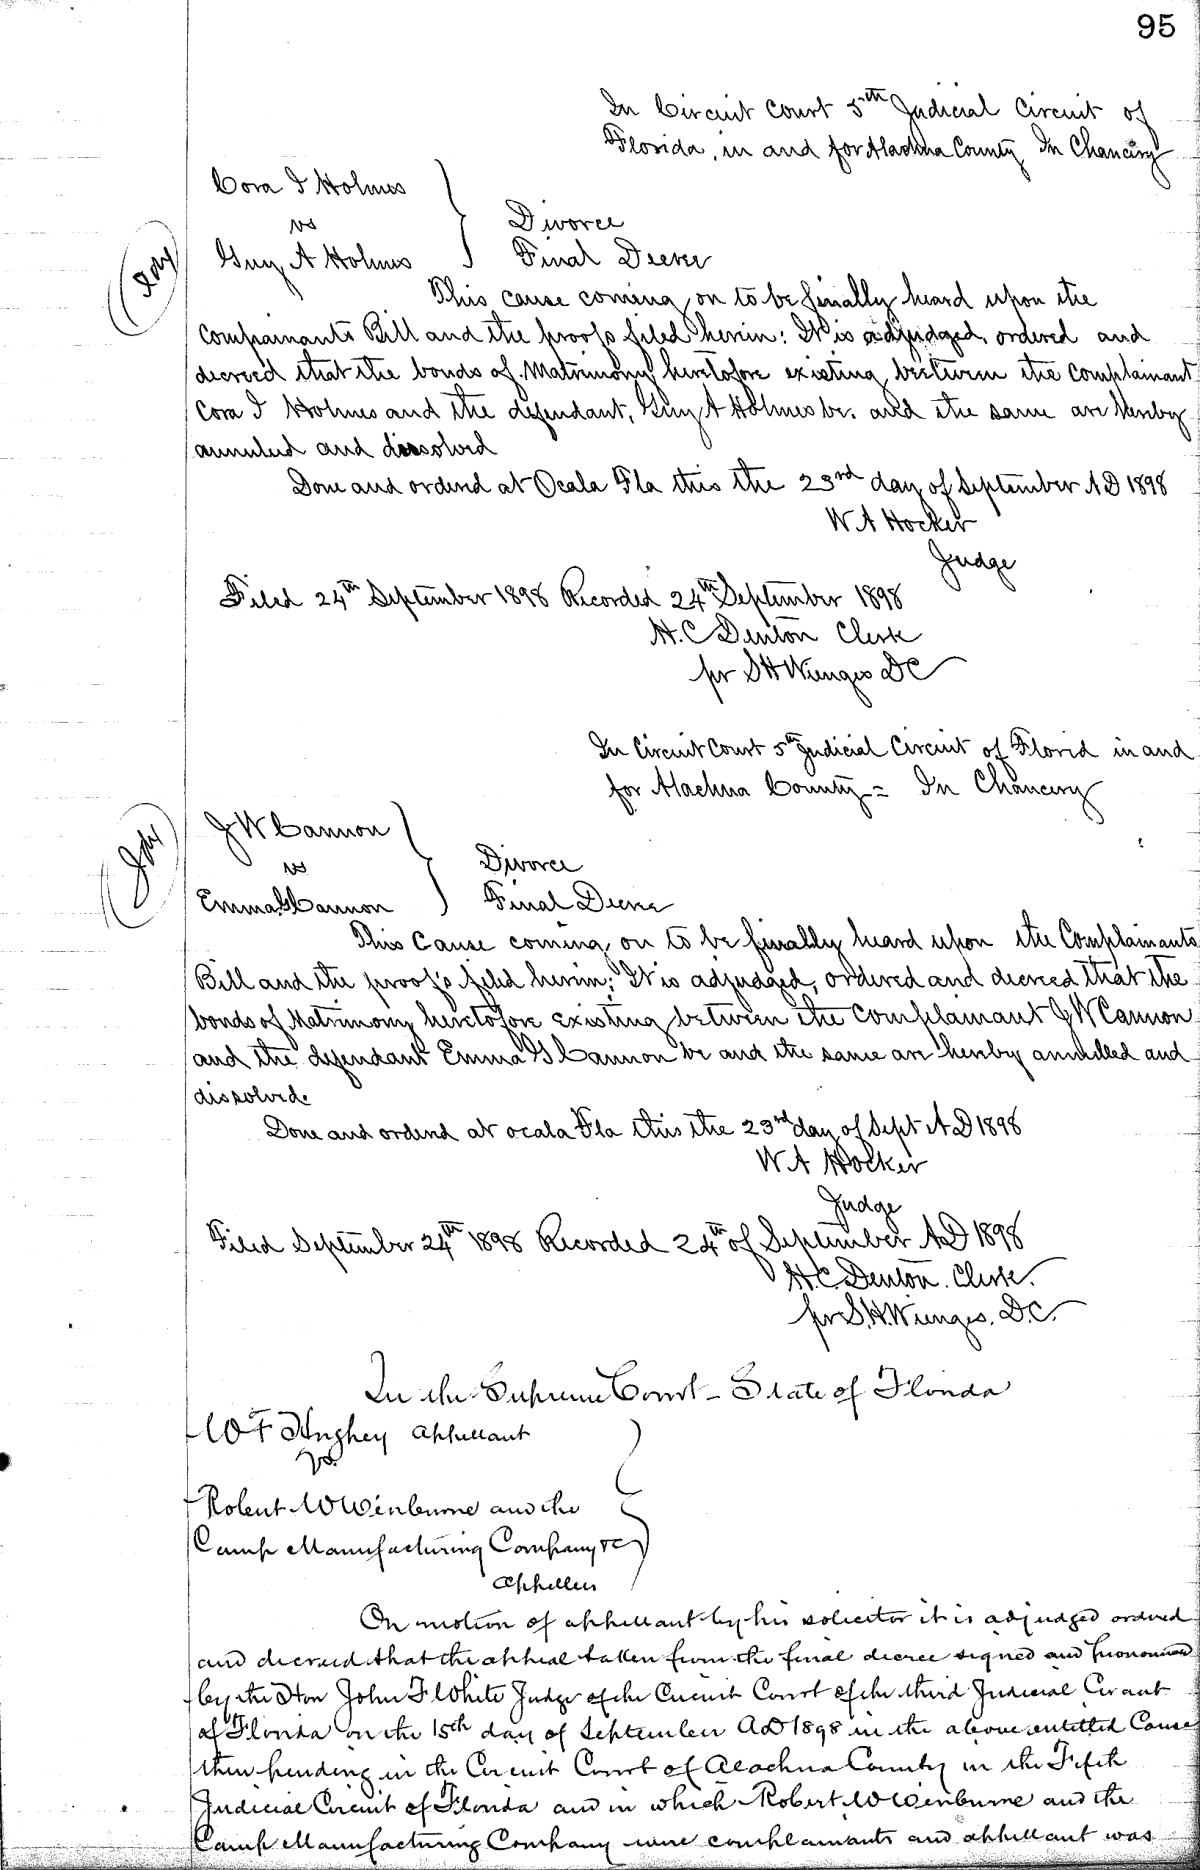 95
In Circuit Court 5th Judicial Circuit of
Florida, in and for Alachua County In Chancery
Cora I Holmes
vs
Guy A Holmes
Divorce
Final Decree
This cause coming on to be finally heard upon the
compainants Bill and the proofs filed herein: It is adjudged, ordered and
decreed that the bonds of Matrimony heretofore existing between the complainant
Cora I Holmes and the defendant, Guy A Holmes be. and the same are hereby
annuled and dissolved
Done and ordered at Ocala Fla this the 23rd day of September A D 1898
W A Hocker
Judge
Filed 24th September 1898 Recorded 24th September 1898
H. C Denton Clerk
pr S H Wienges DC
In Circuit Court 5th Judicial Circuit of Florid in and
for Alachua County = In Chancery
J W Cannon
vs
Emma G Cannon
Divorce
Final Decree
This Cause coming on to be finally heard upon the Complainants
Bill and the proof's filed herein; It is adjudged, ordered and decreed that the
bonds of Matrimony heretofore existing between the complainant J W Cannon
and the defendant Emma G Cannon be and the same are hereby annulled and
dissolved.
Done and ordered at ocala Fla this the 23rd day of Sept A D 1898
W A Hocker
Judge
Filed September 24th 1898 Recorded 24th of September A D 1898
H. C. Denton. Clerk.
pr S. H. Wienges. D. C.
In the Supreme Court - State of Florida
W F Hughey appellant
vs.
Robert W Winburne and the
Camp Manufacturing Company &C
appellees
On motion of appellant by his solicitor it is adjudged ordered
and decreed that the appeal taken from the final decree signed and pronounced
by the Hon John F White Judge of the Circuit Court of the third Judicial Circuit
of Florida on the 15th day of September A D 1898 in the above entitled Cause
then pending in the Circuit Court of Alachua County in the Fifth
Judicial Circuit of Florida and in which Robert W Winburne and the
Camp Manufacturing Company were complainants and appellant was